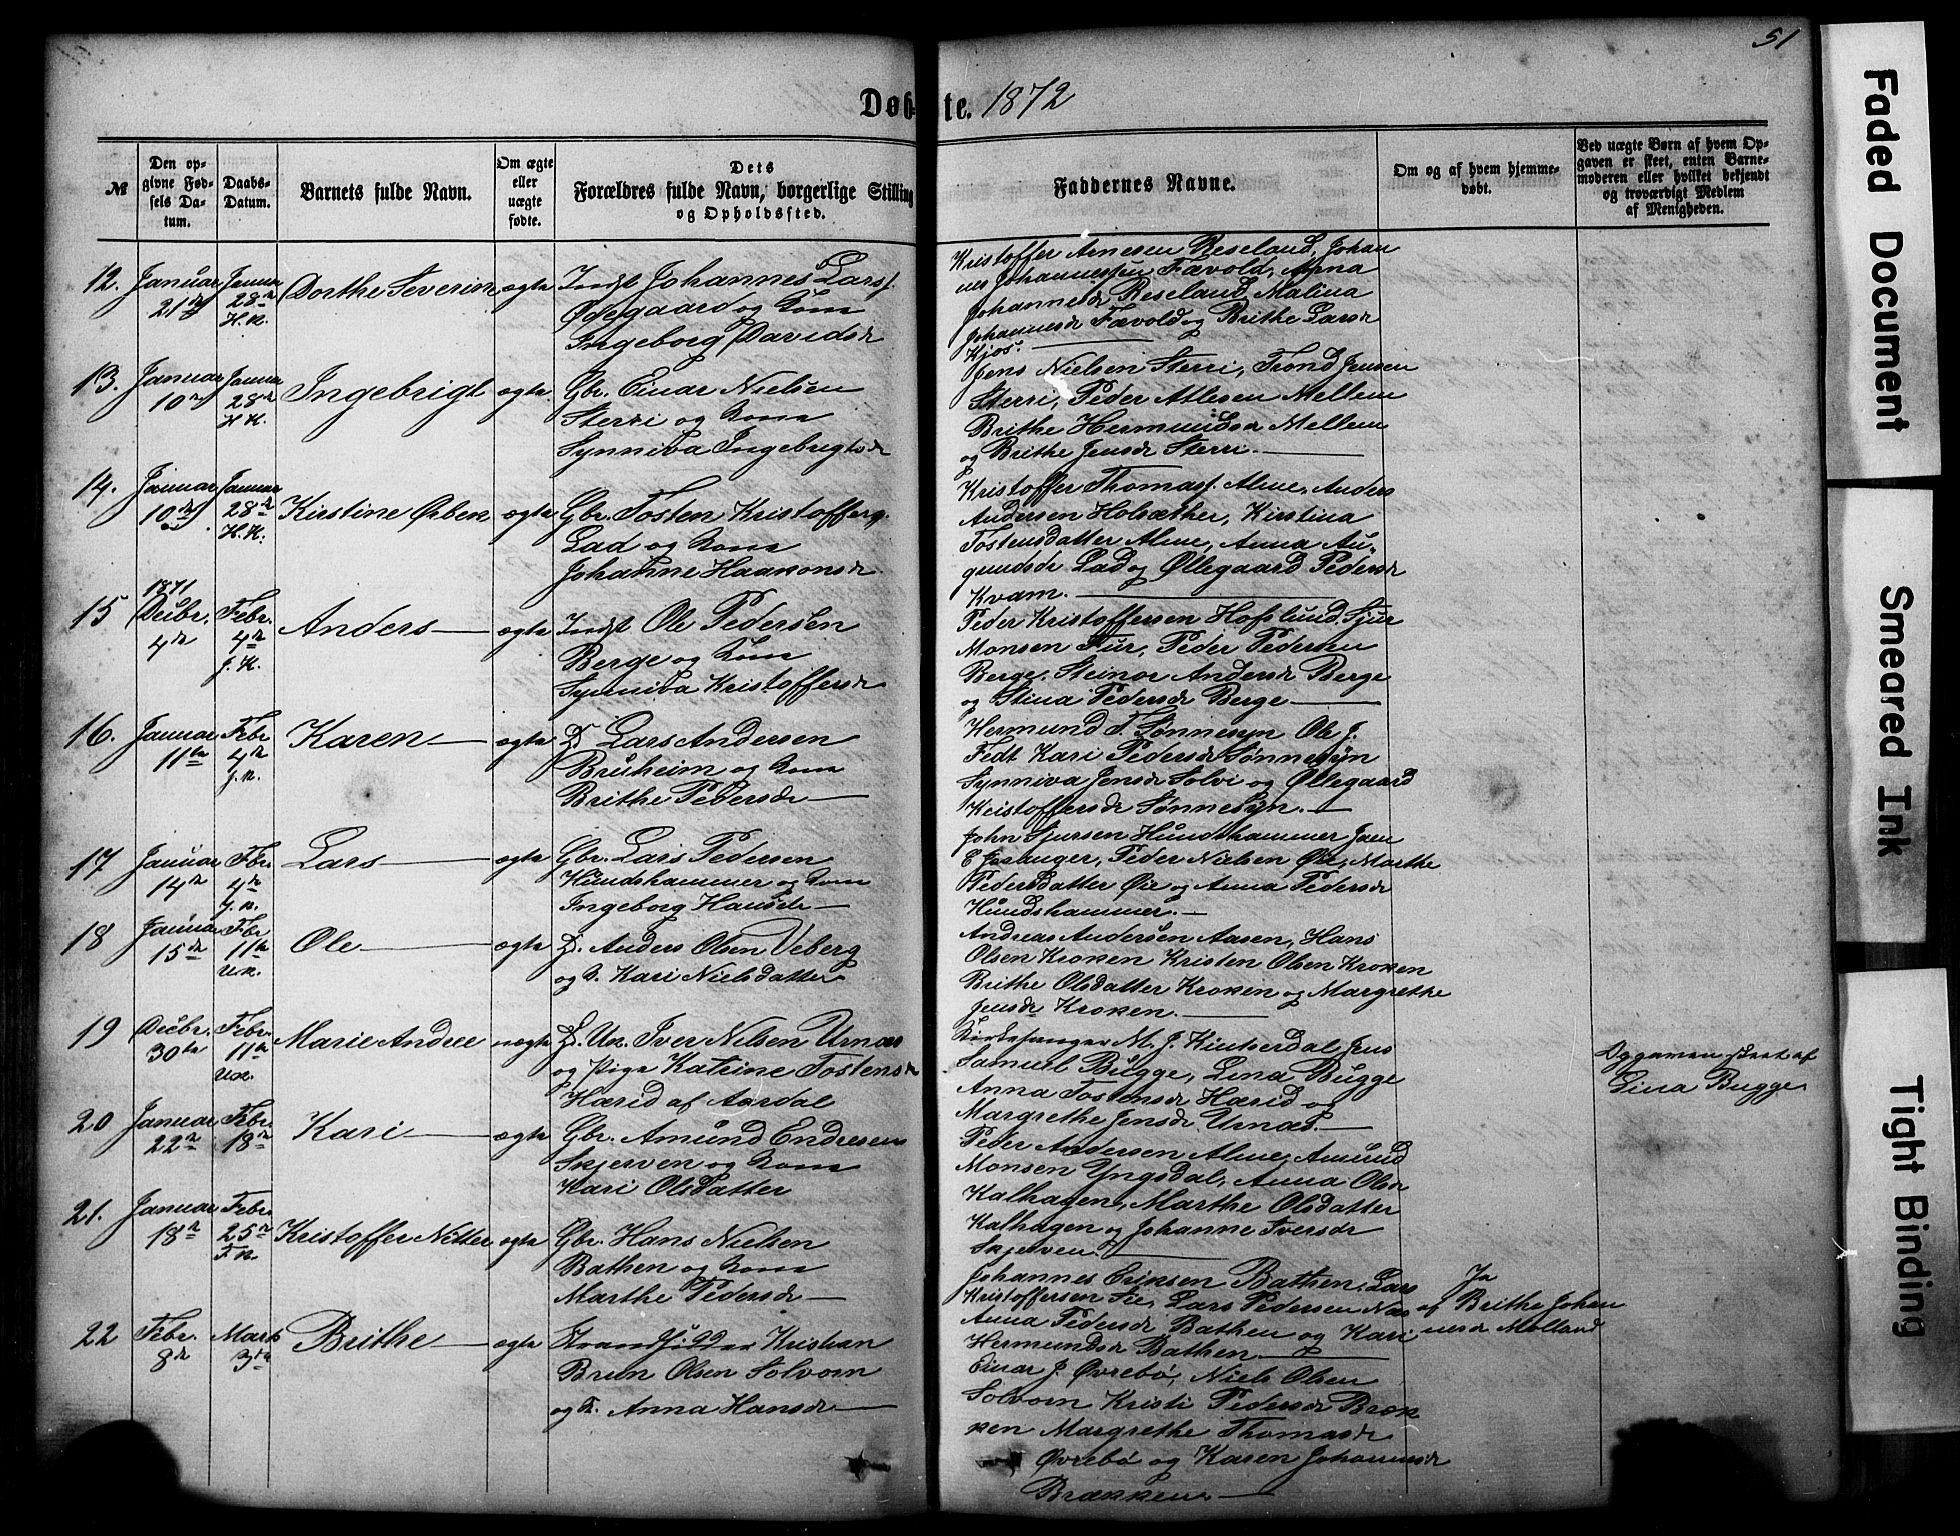 51
Døbte. 1872
№
Den opgivne Fødsels Datum.
Daabs-Datum.
Barnets fulde Navn.
Om ægte eller uægte fødte.
Dets Forældres fulde Navn, borgerlige Stilling og Opholdssted.
Faddernes Navne.
Om og af hvem hjemmedøbt.
Ved uægte Børn af hvem Opgaven er skeet, enten Barnemoderen eller hvilket bekjendt og troværdigt Medlem af Menigheden.
12. Januar 21de Januar 28de H.K. Dorthe Severine ægte Johannes Larss.
Ødegaard og Kone
Ingeborg Davidsdr
Kristoffer Arnesen Reseland, Johan
nes Johannessen Fævold, Anna
Johannesdr Reseland, Malina
Johannesdr Fævold og Brithe Larsdr
Kjos.
13. Januar 10de Januar 28de H.K. Ingebrigt ægte. Gbr. Einar Nielsen
Sterri og Kone
Synniva Ingebrigtsdr
Jens Nielsen Sterri, Trond Jensen
Sterri, Peder Atlesen Mellem
Brithe Hermundsdr Mellem
og Brithe Jensdr Sterri.
14. Januar 10de Januar 28de H.K. Kirstine Orben ægte Gbr. Tosten Kristoffers.
Lad og Kone
Johanne Haakonsdr
Kristoffer Thomass. Alme, Anders
Andersen Holsæther, Kirstina
Tostensdatter Alme, Anna Au-
gundsdr Lad og Øllegaard Pedersdr
Kvam.
15 1871 Decbr. 4de Febr. 4de J.K. Anders ægte Indst Ole Pedersen
Berge og Kone
Synniva Kristoffersdr
Peder Kristoffersen Hofslund, Sjur
Monsen Fur, Peder Pedersen
Berge, Steinor Andersdr Berge
og Stina Pedersdr Berge
16. Januar 11te Febr 4de J.K. Karen ægte D. Lars Andersen
Brusheim og Kone
Brithe Pedersdr
Hermund T. Sønnesyn Ole J.
Fedt Kari Pedersdr Sønnesyn
Synniva Jensdr Solvi og Øllegaard
Kristoffersdr Sønnesyn.
17 Januar 14de Fbr. 4de J.K. Lars ægte Gbr. Lars Pedersen
Hundshammer og Kone
Ingeborg Hansdr
John Sjursen Hundshammer Jom
E Josanger, Peder Nielsen Øie, Marthe
Pedersdatter Øie og Anna Pedersdr
Hundshammer.
18 Januar 15de Fbr 11te U.K. Ole ægte D. Anders Olsen Veberg
og K. Kari Nielsdatter
Andreas Andersen Aasen, Hans
Olsen Kroken Kristen Olsen Kroken
Brithe Olsdatter Kroken og Margrethe
Jensdr Kroken.
19 Decbr. 30te Febr. 11te U.K. Marie Andree uægte D. Uk. Iver Nilsen Urnæs
og Pige Katrine Tostensdr
Hæreid af Aardal
Kirkesanger M. J. Kinserdal Jens
Samuel Bugge, Lina Bugge
Anna Tostensdr Hæreid og
Margrethe Jensdr Urnæs.
Opgaven skeet af
Lina Bugge
20 Januar 22de Febr. 18de Kari ægte Gbr. Amund Endresen
Skjerven og Kone
Kari Olsdatter
Peder Andersen Alme, Amund
Monsen Yngsdal, Anna Olsdr
Kalhagen, Marthe Olsdatter
Kalhagen og Johanne Iversdr
Skjerven.
21. Januar 18de Febr. 25de F.K. Kristoffer Nitter ægte Gbr. Hans Nielsen
Bathen og Kone
Marthe Pedersdr
Johannes Eriksen Bathen, Lars
Kristoffersen Sie, Lars Pedersen Næs
Anna Pedersdr Bathen og Kari
Hermundsdr Bathen.
Ja
af Brithe Johan
nesdr Molland
22 Febr. 8de Marts 3die Brithe ægte Strandsidder Kristian
Brun Olsen Solvorn
og K. Anna Hansdr
Einar J. Øvrebø, Niels Olsen
Solvorn Kristi Pedersdr Bræk
ken Margrethe Thomasdr
Øvrebø og Karen Johannesdr
Brækken
Faded Document
Smeared Ink
Tight Binding